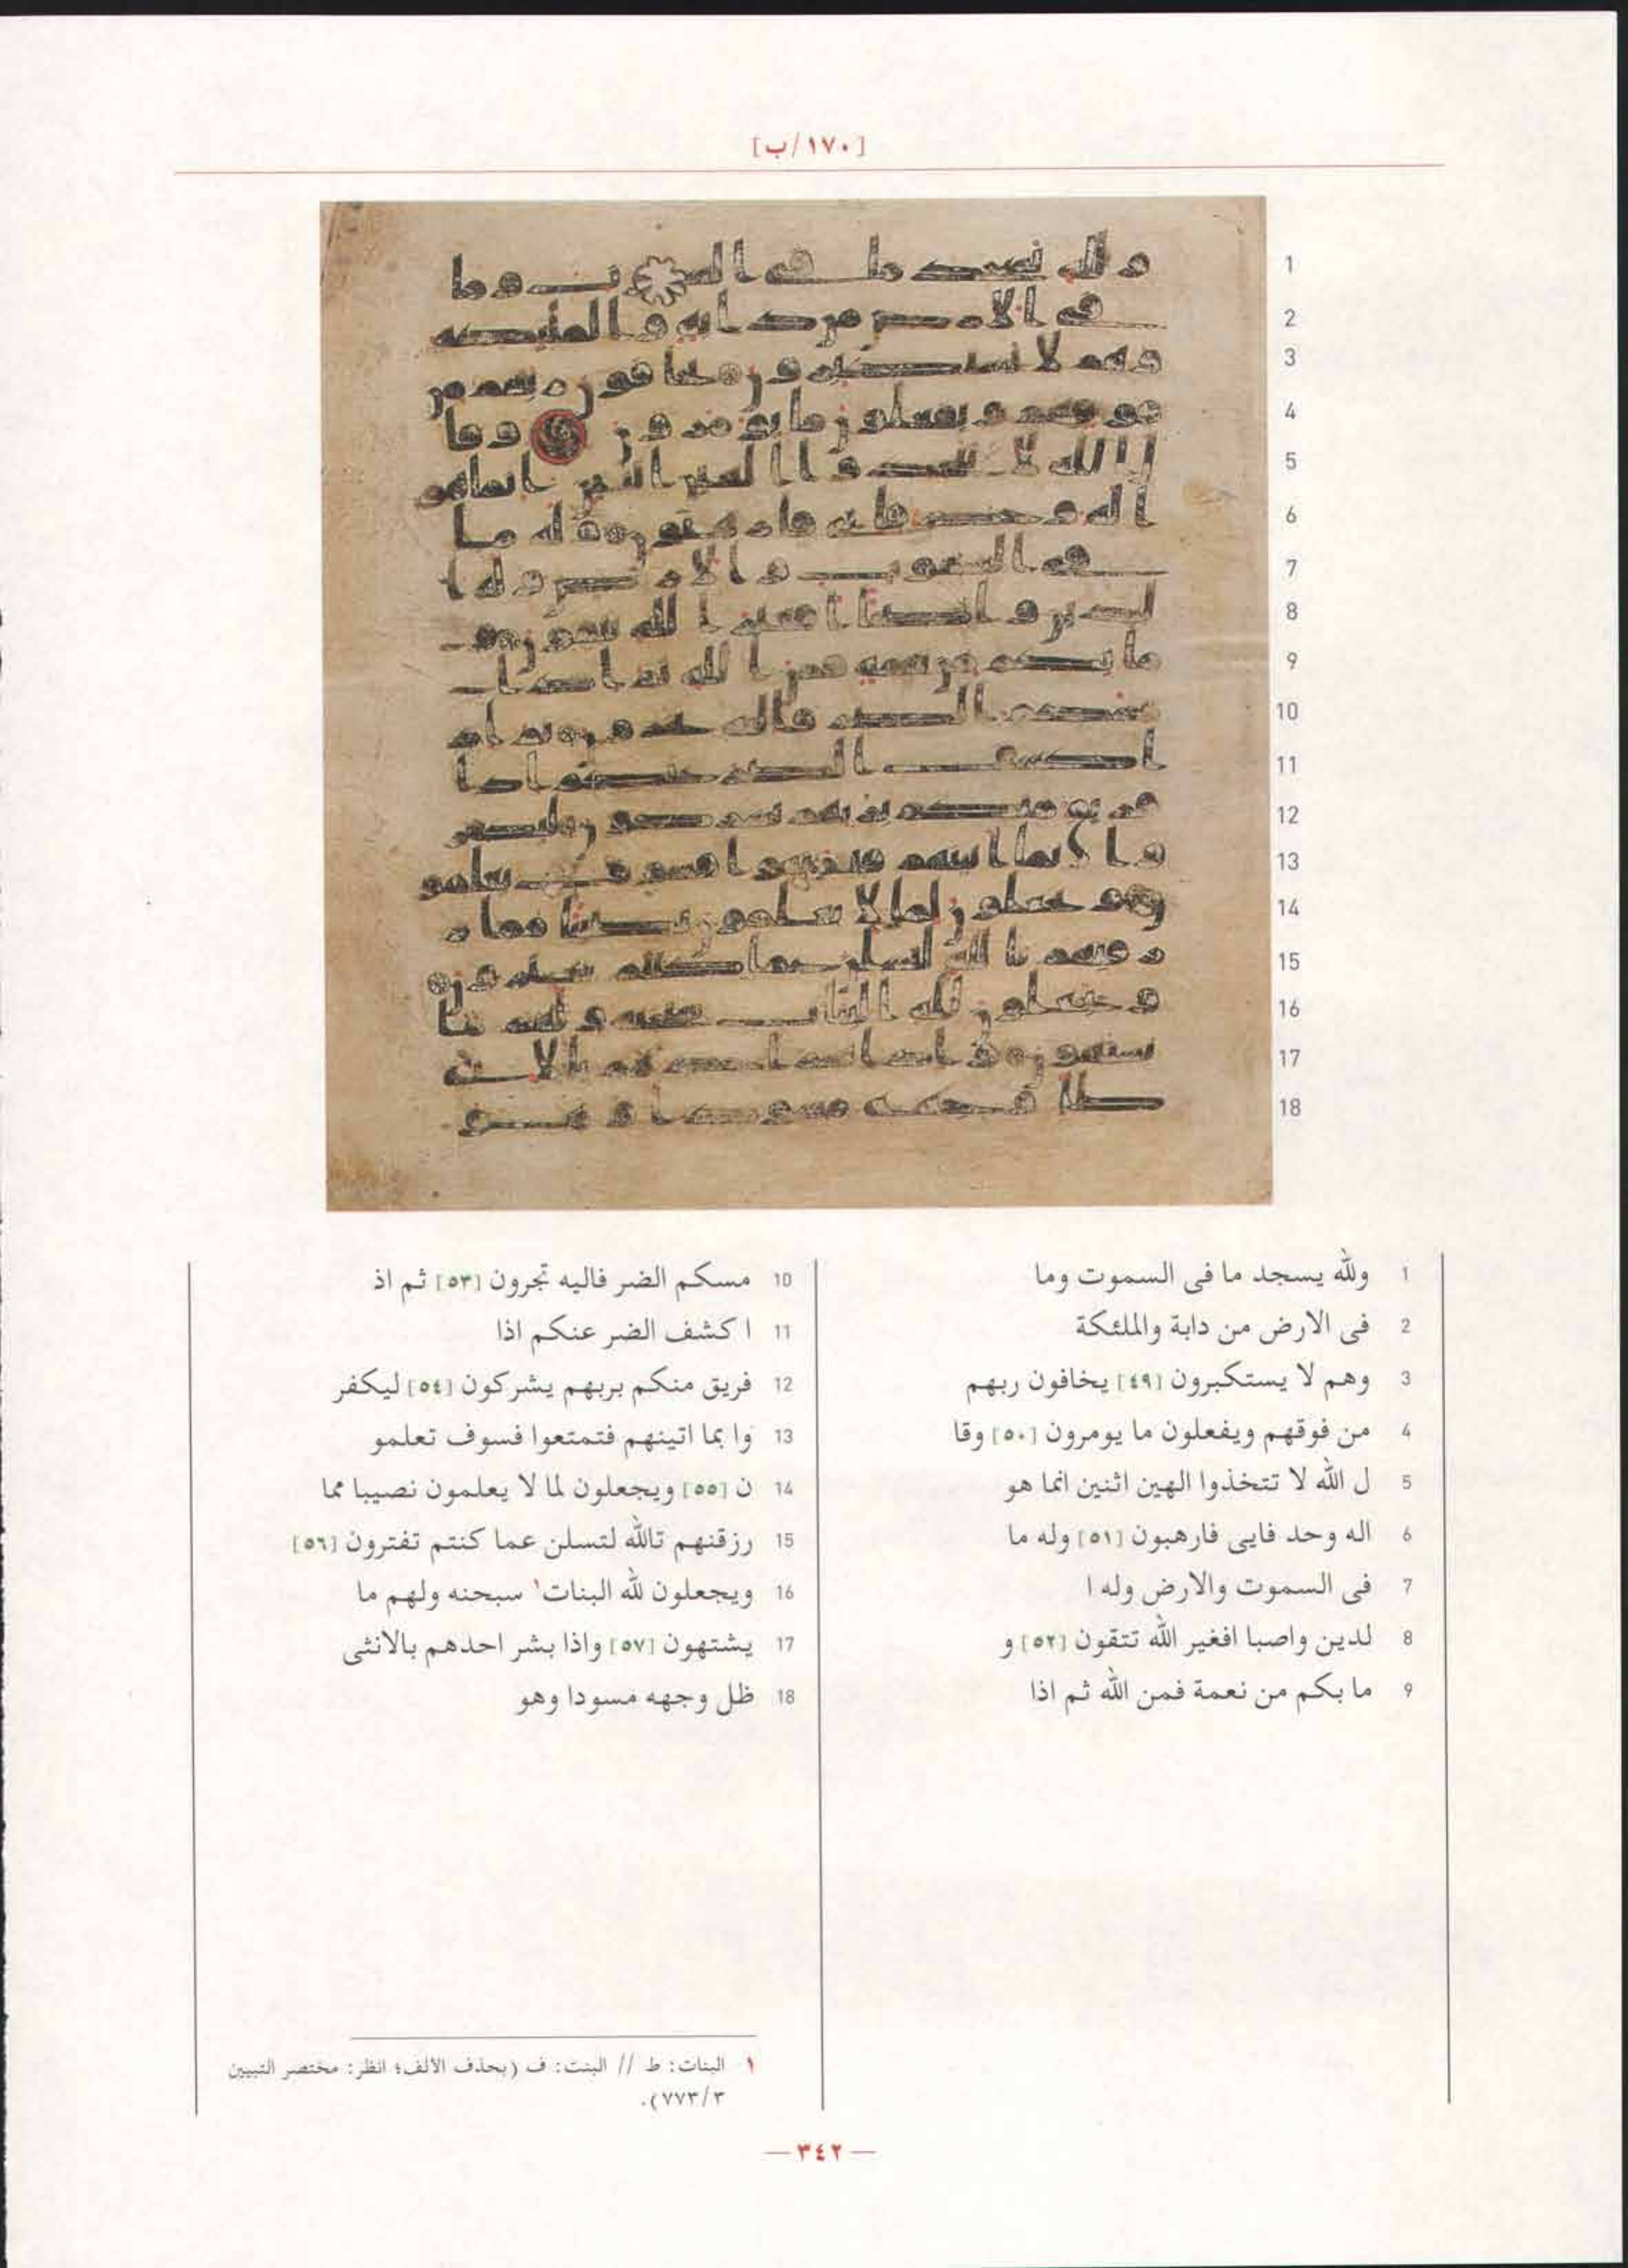 [١٧٠/ب]
1 ولله يسجد ما فى السموت وما
2 فى الارض من دابة والملئكة
3 وهم لا يستكبرون [٤٩] يخافون ربهم
4 من فوقهم ويفعلون ما يومرون [٥٠] وقا
5 ل الله لا تتخذوا الهين اثنين انما هو
6 اله وحد فايى فارهبون [٥١] وله ما
7 فى السموت والارض وله ا
8 لدين واصبا افغير الله تتقون [٥٢] و
9 ما بكم من نعمة فمن الله ثم اذا
10 مسكم الضر فاليه تجرون [٥٣] ثم اذ
11 ا كشف الضر عنكم اذا
12 فريق منكم بربهم يشركون [٥٤] ليكفر
13 وا بما اتينهم فتمتعوا فسوف تعلمو
14 ن [٥٥] ويجعلون لما لا يعلمون نصيبا مما
15 رزقنهم تالله لتسلن عما كنتم تفترون [٥٦]
16 ويجعلون لله البنات١ سبحنه ولهم ما
17 يشتهون [٥٧] واذا بشر احدهم بالانثى
18 ظل وجهه مسودا وهو
١ البنات: ط // البنت: ف (بحذف الألف؛ انظر: مختصر التبيين
٧٧٣/٣).
— ٣٤٢ —